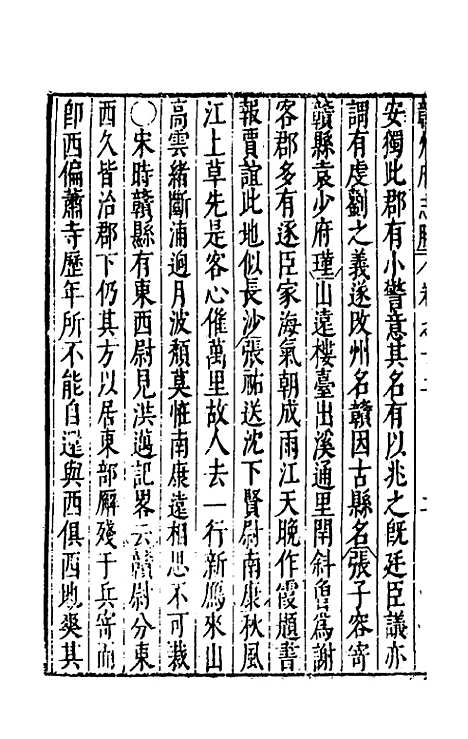 安獨此郡有小警意其名有以兆之旣廷臣議亦
謂有虔劉之義遂改州名贛因古縣名張子容寄
贛縣袁少府瑾山遠樓臺出溪通里閈斜曾爲謝
客郡多有逐臣家海氣朝成雨江天晚作霞題書
報賈誼此地似長沙張祐送沈下賢尉南康秋風
江上草先是客心催萬里故人去一行新鴈來山
高雲緒斷浦逈月波頹莫恠南康遠相思不可裁
〇宋時贛縣有東西尉見洪邁記畧云贛尉分東
西久皆治郡下仍其方以居東部廨殘于兵寄而
卽西偏蕭寺歷年所不能自還與西俱西地奭其